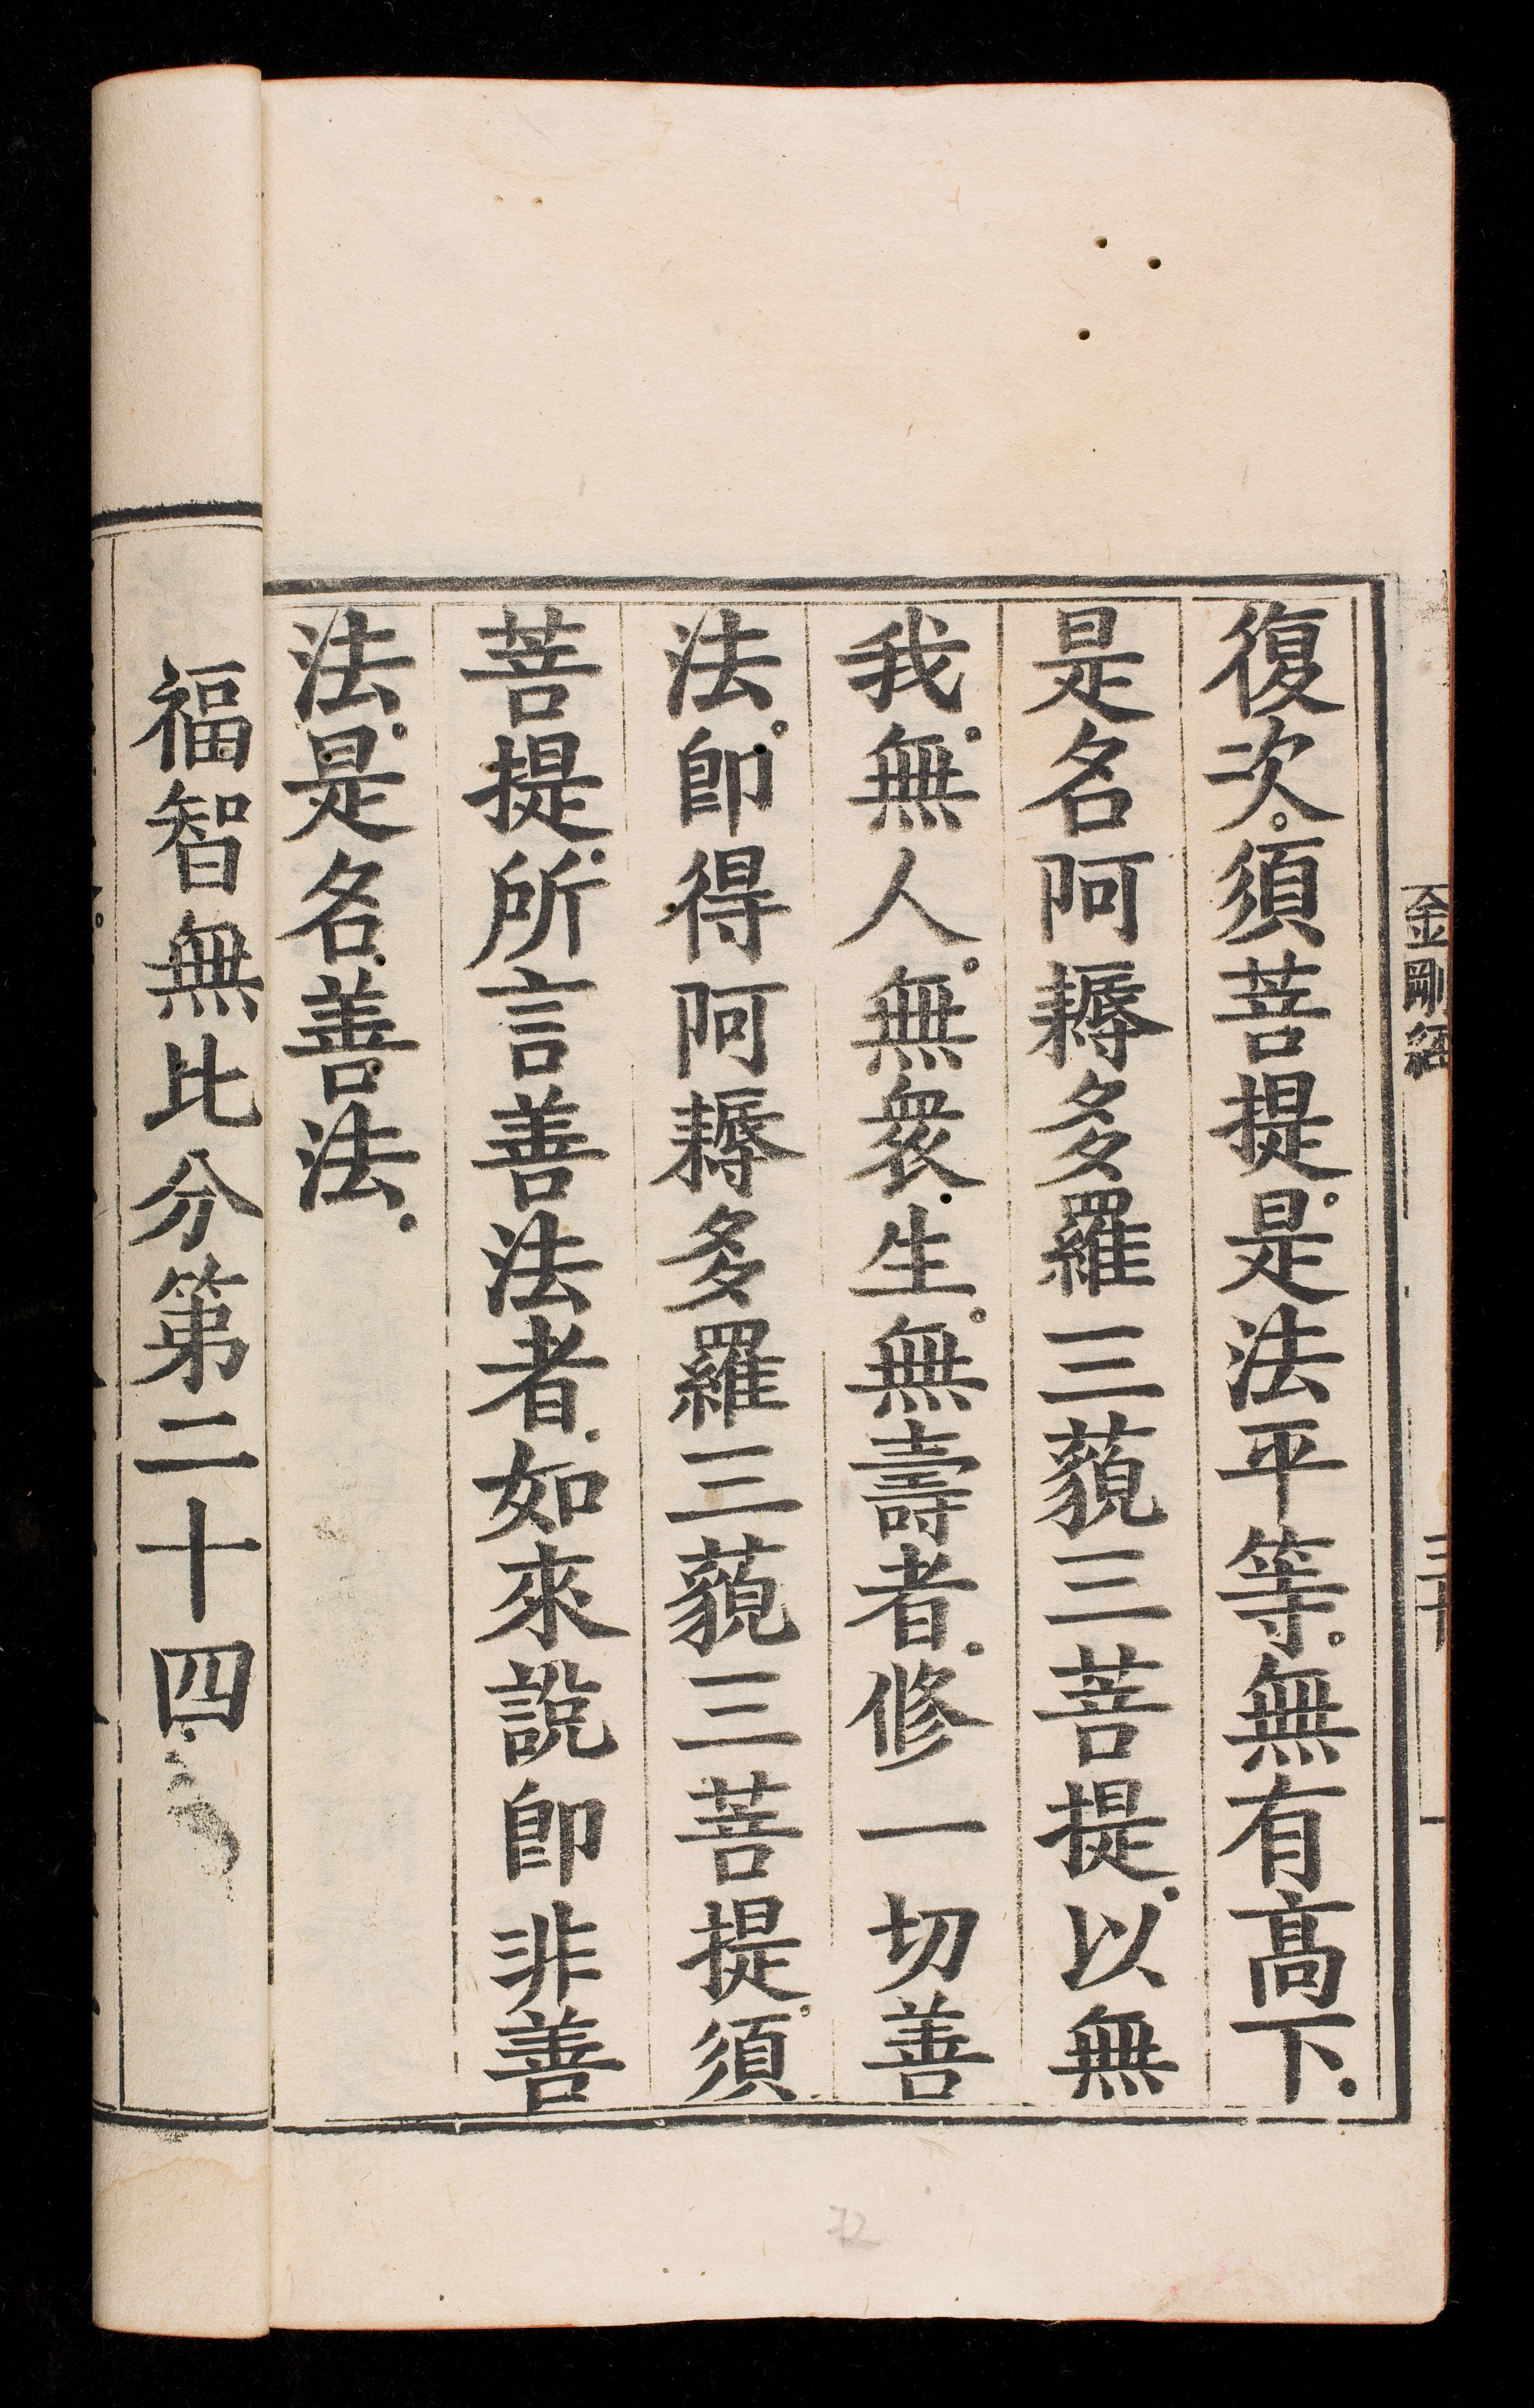 復次。須菩提。是法平等。無有高下。
是名阿耨多羅三藐三菩提。以無
我。無人。無衆生。無壽者。修一切善
法。卽得阿耨多羅三藐三菩提。須
菩提。所言善法者。如來說卽非善
法。是名善法。
福智無比分第二十四
金剛經
72